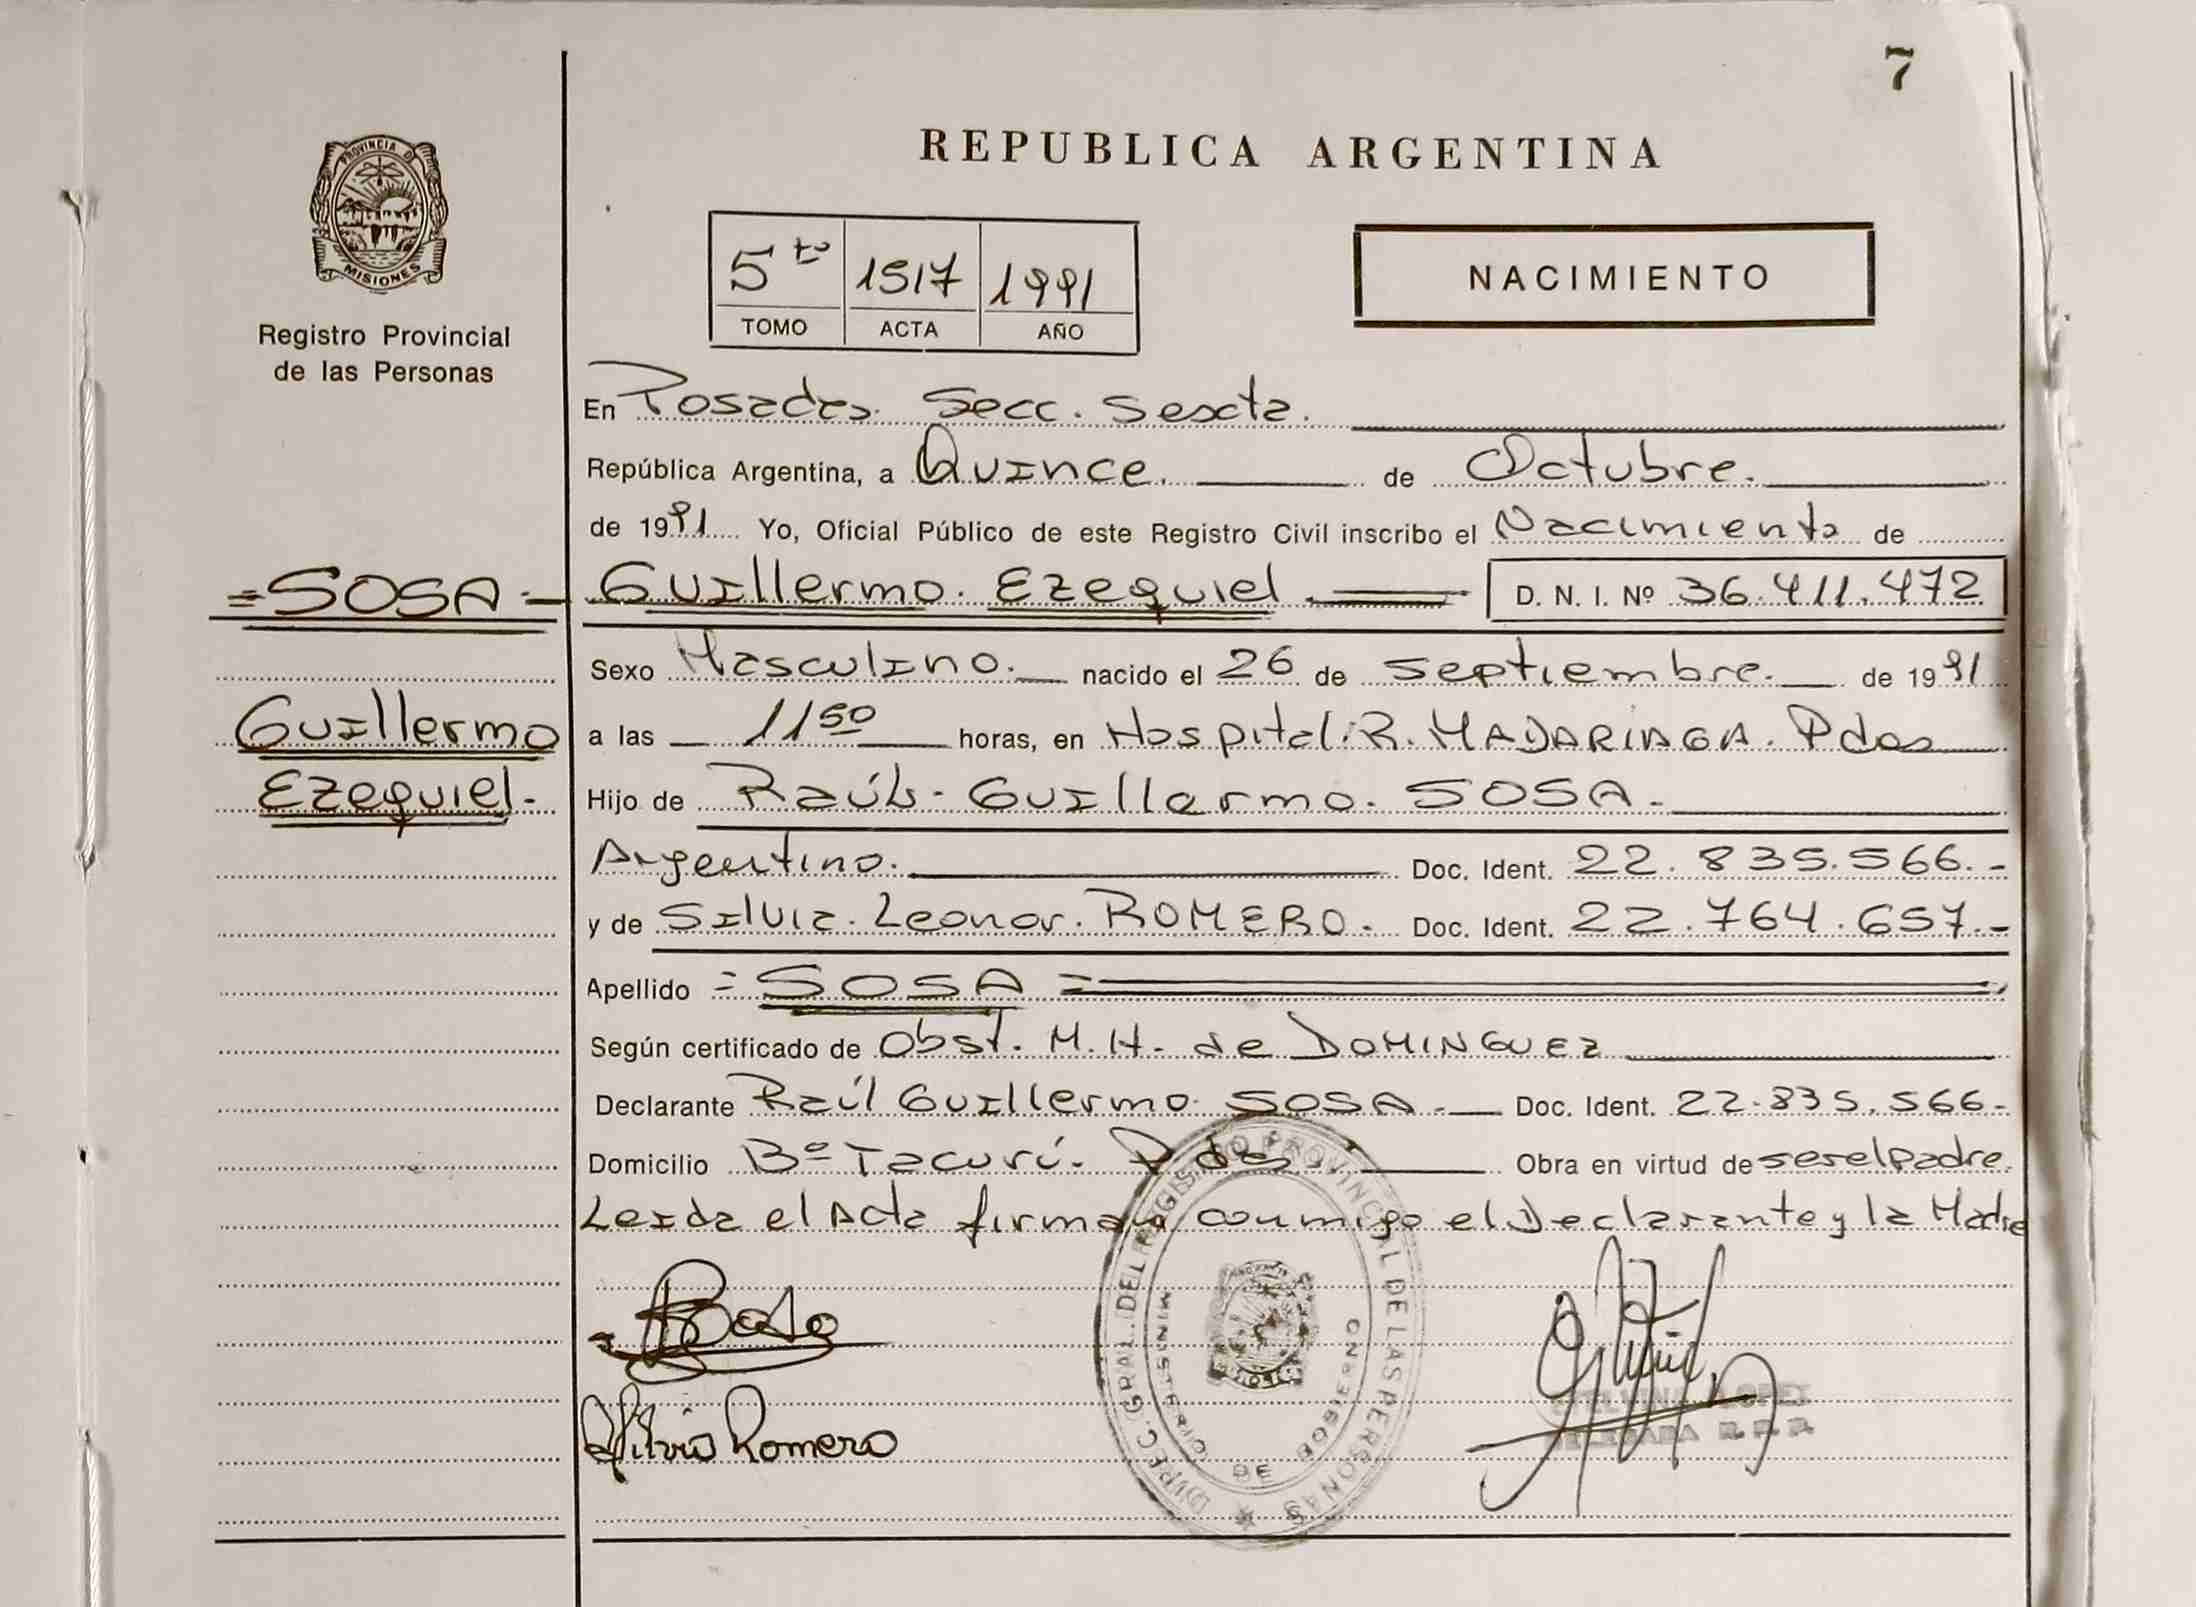 7
REPUBLICA ARGENTINA
PROVINCIA DE
MISIONES
Registro Provincial
de las Personas
5to 1517 1991
TOMO ACTA AÑO
NACIMIENTO
En Posadas. Secc. Sexta.
República Argentina, a Quince. de Octubre.
de 1991 Yo, Oficial Público de este Registro Civil inscribo el Nacimiento de
=SOSA= Guillermo. Ezequiel D. N. I. Nº 36.411.472
Sexo Masculino. nacido el 26 de Septiembre. de 1991
Guillermo
a las 11 50 horas, en Hospital. R. MADARIAGA. Pdas
Ezequiel.-
Hijo de Raúl. Guillermo. SOSA.
Argentino. Doc. Ident. 22.835.566.-
y de Silvia. Leonor. ROMERO. Doc. Ident. 22.764.657.-
Apellido =SOSA=
Según certificado de Obst. M. H. de DOMINGUEZ
Declarante Raúl Guillermo SOSA.- Doc. Ident. 22.835.566-
Domicilio Bº Tacurú. Pdas. Obra en virtud de ser el padre.
Leida el Acta firman conmigo el Declarante y la Madre
Silvia Romero
DIREC. GRAL. DEL REGISTRO PROVINCIAL DE LAS PERSONAS
MINISTERIO DE GOBIERNO